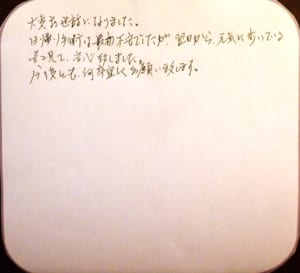 大変お世話になりました。
日帰り手術は、最初不安でしたが、翌日から、元気に歩いている
姿を見て、安心致しました。
今後とも、何卒宜しくお願い致します。